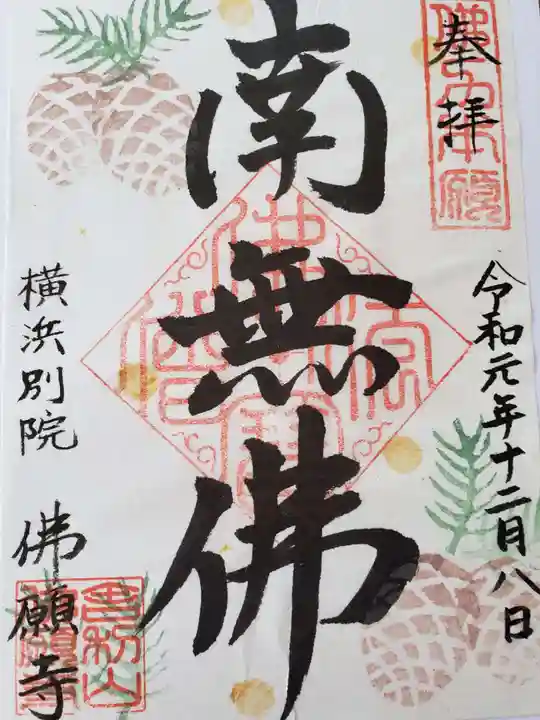 奉拝
令和元年十二月八日
南無佛
横浜別院 佛願寺